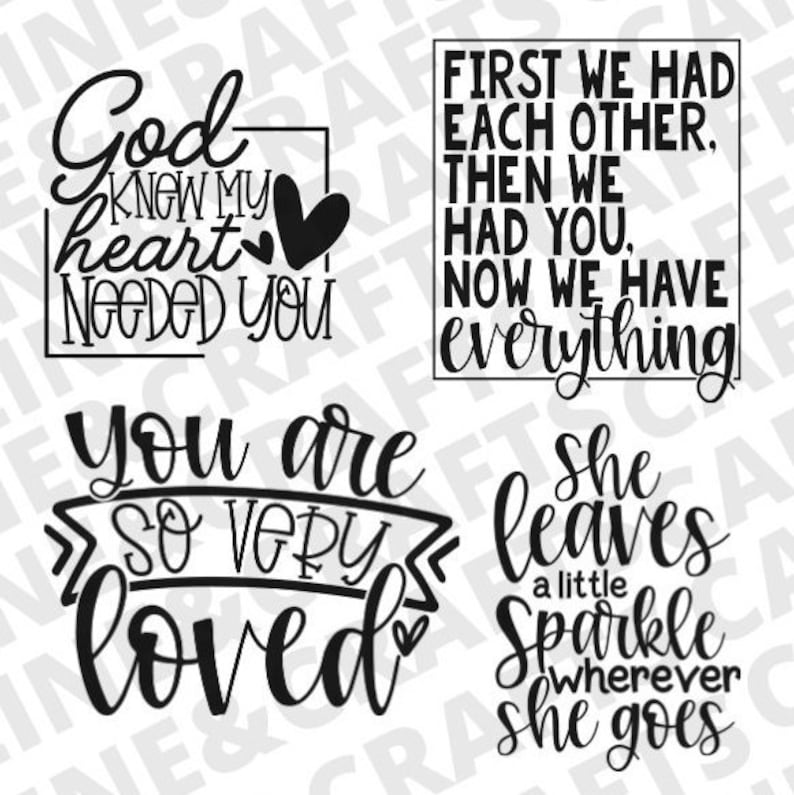 God
KNEW MY
heart
NEEDED YOU
FIRST WE HAD
EACH OTHER,
THEN WE
HAD YOU,
NOW WE HAVE
everything
you are
SO VERY
loved
she
leaves
a little
sparkle
wherever
she goes